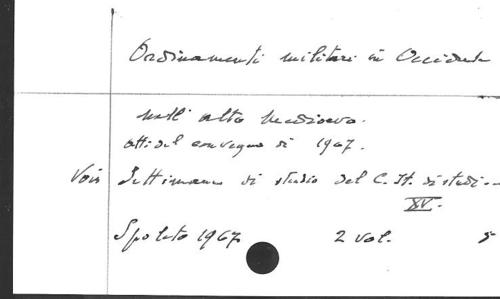 Ordinamenti militari in Occidente
nell' alto medioevo.
atti del convegno di 1967.
Voir Settimane di studio del C. It. di studi
XV.
Spoleto 1967 2 vol.